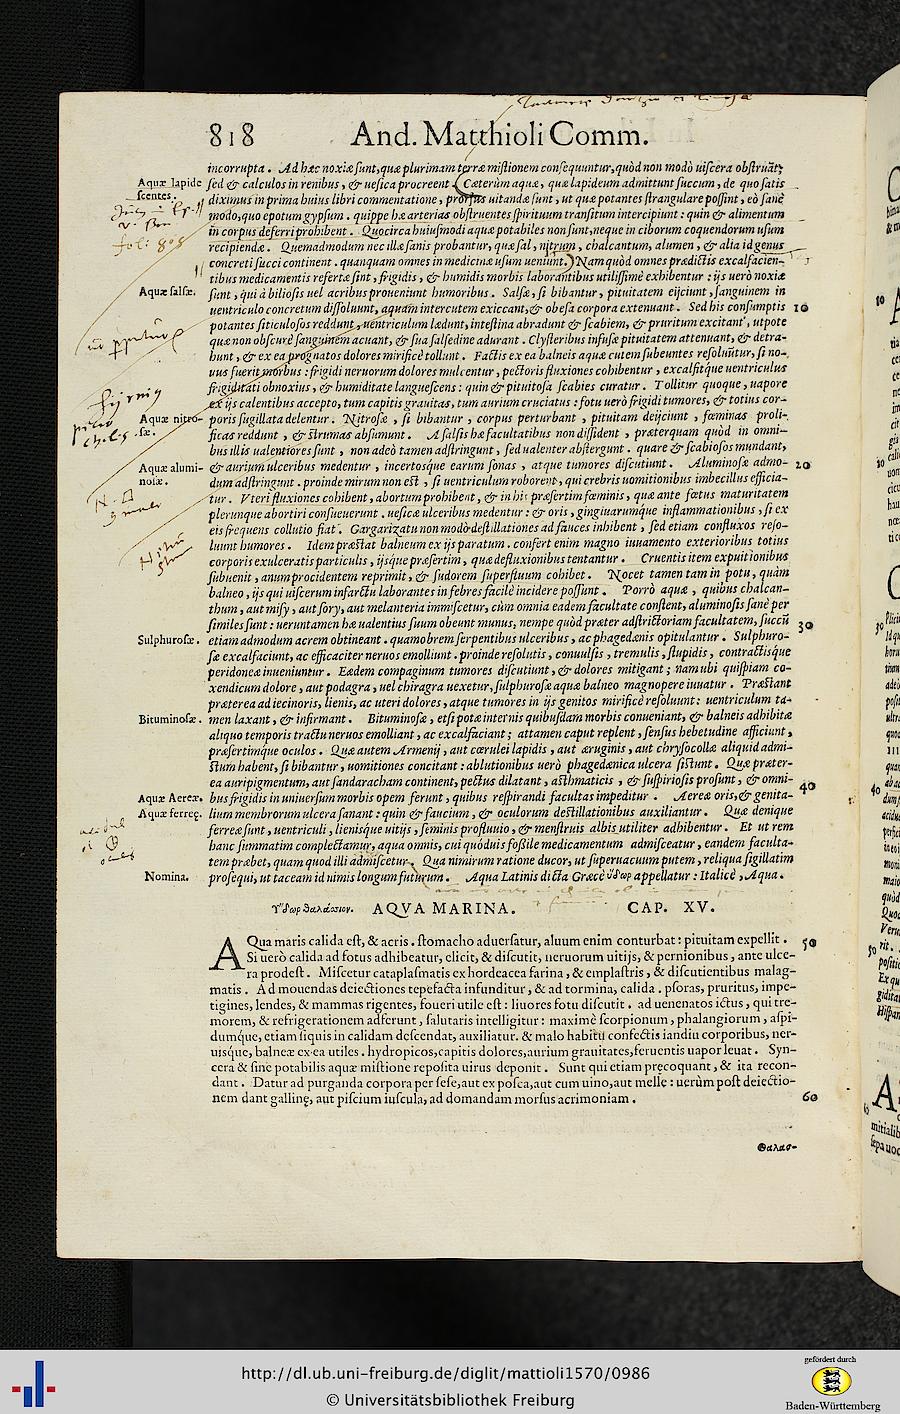 818 And. Matthioli Comm.
incorrupta. Ad hæc noxiæ sunt, quæ plurimam terræ mistionem consequuntur, quòd non modò uiscera obstruāt;
Aquæ lapide
scentes.
sed & calculos in renibus, & uesica procreent. Cæterùm aquæ, quæ lapideum admittunt succum, de quo satis
diximus in prima huius libri commentatione, prorsus uitandæ sunt, ut quæ potantes strangulare possint, eò sanè
modo, quo epotum gypsum. quippe hæ arterias obstruentes spirituum transitum intercipiunt: quin & alimentum
in corpus deferri prohibent. Quocirca huiusmodi aquæ potabiles non sunt, neque in ciborum coquendorum usum
recipiendæ. Quemadmodum nec illæ sanis probantur, quæ sal, nitrum, chalcantum, alumen, & alia id genus
concreti succi continent. quanquam omnes in medicinæ usum ueniunt. Nam quòd omnes prædictis excalfacien-
tibus medicamentis refertæ sint, frigidis, & humidis morbis laborantibus utilissimè exhibentur: ijs uerò noxiæ
Aquæ salsæ.
sunt, qui à biliosis uel acribus proueniunt humoribus. Salsæ, si bibantur, pituitatem eijciunt, sanguinem in
uentriculo concretum dissoluunt, aquam intercutem exiccant, & obesa corpora extenuant. Sed his consumptis 10
potantes siticulosos reddunt, uentriculum lædunt, intestina abradunt & scabiem, & pruritum excitant, utpote
quæ non obscurè sanguinem acuant, & sua salsedine adurant. Clysteribus infusæ pituitatem attenuant, & detra-
hunt, & ex ea prognatos dolores mirificè tollunt. Factis ex ea balneis aquæ cutem subeuntes resoluūtur, si no-
uus fuerit morbus: frigidi neruorum dolores mulcentur, pectoris fluxiones cohibentur, excalfitq́ue uentriculus
frigiditati obnoxius, & humiditate languescens: quin & pituitosa scabies curatur. Tollitur quoque, uapore
ex ijs calentibus accepto, tum capitis grauitas, tum aurium cruciatus: fotu uerò frigidi tumores, & totius cor-
Aquæ nitro-
sæ.
poris sugillata delentur. Nitrosæ, si bibantur, corpus perturbant, pituitam deijciunt, fœminas proli-
ficas reddunt, & strumas absumunt. A salsis hæ facultatibus non dissident, præterquam quòd in omni-
bus illis ualentiores sunt, non adeò tamen adstringunt, sed ualenter abstergunt. quare & scabiosos mundant,
Aquæ alumi-
nosæ.
& aurium ulceribus medentur, incertosq́ue earum sonas, atque tumores discutiunt. Aluminosæ admo- 20
dum adstringunt. proinde mirum non est, si uentriculum roborent, qui crebris uomitionibus imbecillus efficia-
tur. Vteri fluxiones cohibent, abortum prohibent, & in his præsertim fœminis, quæ ante fœtus maturitatem
plerunque abortiri consueuerunt. uesicæ ulceribus medentur: & oris, gingiuarumque inflammationibus, si ex
eis frequens collutio fiat. Gargarizatu non modò destillationes ad fauces inhibent, sed etiam confluxos reso-
luunt humores. Idem præstat balneum ex ijs paratum. confert enim magno iuuamento exterioribus totius
corporis exulceratis particulis, ijsque præsertim, quæ defluxionibus tentantur. Cruentis item expuitionibus
subuenit, anum procidentem reprimit, & sudorem superfluum cohibet. Nocet tamen tam in potu, quàm
balneo, ijs qui uiscerum infarctu laborantes in febres facilè incidere possunt. Porrò aquæ, quibus chalcan-
thum, aut misy, aut sory, aut melanteria immiscetur, cùm omnia eadem facultate constent, aluminosis sanè per
similes sunt: ueruntamen hæ ualentius suum obeunt munus, nempe quòd præter adstrictoriam facultatem, succū 30
Sulphurosæ.
etiam admodum acrem obtineant. quamobrem serpentibus ulceribus, ac phagedænis opitulantur. Sulphuro-
sæ excalfaciunt, ac efficaciter neruos emolliunt. proinde resolutis, conuulsis, tremulis, stupidis, contractisq́ue
peridoneæ inueniuntur. Eædem compaginum tumores discutiunt, & dolores mitigant; nam ubi quispiam co-
xendicum dolore, aut podagra, uel chiragra uexetur, sulphurosæ aquæ balneo magnopere iuuatur. Præstant
præterea ad iecinoris, lienis, ac uteri dolores, atque tumores in ijs genitos mirificè resoluunt: uentriculum ta-
Bituminosæ.
men laxant, & infirmant. Bituminosæ, etsi potæ internis quibusdam morbis conueniant, & balneis adhibitæ
aliquo temporis tractu neruos emolliant, ac excalfaciant; attamen caput replent, sensus hebetudine afficiunt,
præsertimq́ue oculos. Quæ autem Armenij, aut cærulei lapidis, aut æruginis, aut chrysocollæ aliquid admi-
stum habent, si bibantur, uomitiones concitant: ablutionibus uerò phagedænica ulcera sistunt. Quæ præter-
ea auripigmentum, aut sandaracham continent, pectus dilatant, asthmaticis, & suspiriosis prosunt, & omni- 40
Aquæ Aereæ.
bus frigidis in uniuersum morbis opem ferunt, quibus respirandi facultas impeditur. Aereæ oris, & genita-
Aquæ ferreę.
lium membrorum ulcera sanant: quin & faucium, & oculorum destillationibus auxiliantur. Quæ denique
ferreæ sunt, uentriculi, lienisque uitijs, seminis profluuio, & menstruis albis utiliter adhibentur. Et ut rem
hanc summatim complectamur, aqua omnis, cui quóduis fossile medicamentum admisceatur, eandem faculta-
tem præbet, quam quod illi admiscetur. Qua nimirum ratione ducor, ut superuacuum putem, reliqua sigillatim
Nomina.
prosequi, ut taceam id nimis longum futurum. Aqua Latinis dicta Græcè ὕδωρ appellatur: Italicè, Aqua.
Υ῞δωρ θαλάσσιον. AQVA MARINA. CAP. XV.
AQua maris calida est, & acris. stomacho aduersatur, aluum enim conturbat: pituitam expellit. 50
Si uerò calida ad fotus adhibeatur, elicit, & discutit, neruorum uitijs, & pernionibus, ante ulce-
ra prodest. Miscetur cataplasmatis ex hordeacea farina, & emplastris, & discutientibus malag-
matis. Ad mouendas deiectiones tepefacta infunditur, & ad tormina, calida. psoras, pruritus, impe-
tigines, lendes, & mammas rigentes, foueri utile est: liuores fotu discutit. ad uenenatos ictus, qui tre-
morem, & refrigerationem adferunt, salutaris intelligitur: maximè scorpionum, phalangiorum, aspi-
dumq́ue, etiam si quis in calidam descendat, auxiliatur. & malo habitu confectis iandiu corporibus, ner-
uisq́ue, balneæ ex ea utiles. hydropicos, capitis dolores, aurium grauitates, feruentis uapor leuat. Syn-
cera & sine potabilis aquæ mistione reposita uirus deponit. Sunt qui etiam pręcoquant, & ita recon-
dant. Datur ad purganda corpora per sese, aut ex posca, aut cum uino, aut melle: uerùm post deiectio-
nem dant gallinę, aut piscium iuscula, ad domandam morsus acrimoniam. 60
Θαλασ-
http://dl.ub.uni-freiburg.de/diglit/mattioli1570/0986
© Universitätsbibliothek Freiburg
gefördert durch
Baden-Württemberg